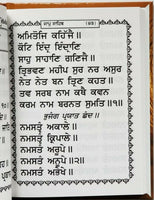 ਜਾਪੁ ਸਾਹਿਬ
ਅਮਿਤੋਜਿ ਕਹਿੱਜੈ ॥
ਕੋਟਿ ਇੰਦ੍ਰ ਇੰਦ੍ਰਾਣਿ
ਸਾਹੁ ਸਾਹਾਣਿ ਗਣਿਜੈ ॥
ਤ੍ਰਿਭਵਣ ਮਹੀਪ ਸੁਰ ਨਰ ਅਸੁਰ
ਨੇਤ ਨੇਤ ਬਨ ਤ੍ਰਿਣ ਕਹਤ ॥
ਤਵ ਸਰਬ ਨਾਮ ਕਥੈ ਕਵਨ
ਕਰਮ ਨਾਮ ਬਰਨਤ ਸੁਮਤਿ ॥੧॥
ਭੁਜੰਗ ਪ੍ਰਯਾਤ ਛੰਦ ॥
ਨਮਸਤੰ ਅਕਾਲੇ ॥
ਨਮਸਤੰ ਕ੍ਰਿਪਾਲੇ ॥
ਨਮਸਤੰ ਅਰੂਪੇ ॥
ਨਮਸਤੰ ਅਨੂਪੇ ॥੨॥
ਨਮਸਤੰ ਅਭੇਖੇ ॥